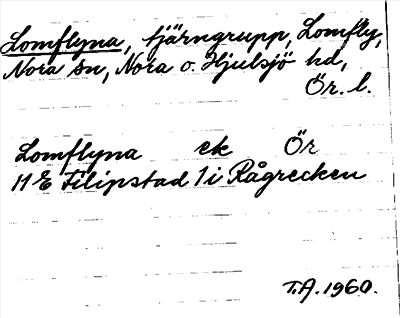 Lomflyna, tjärngrupp, Lomfly,
Nora sn, Nora o. Hjulsjö hd,
Ör. l.
Lomflyna ek Ör
11 E Filipstad 1 i Rågrecken
T.A. 1960.